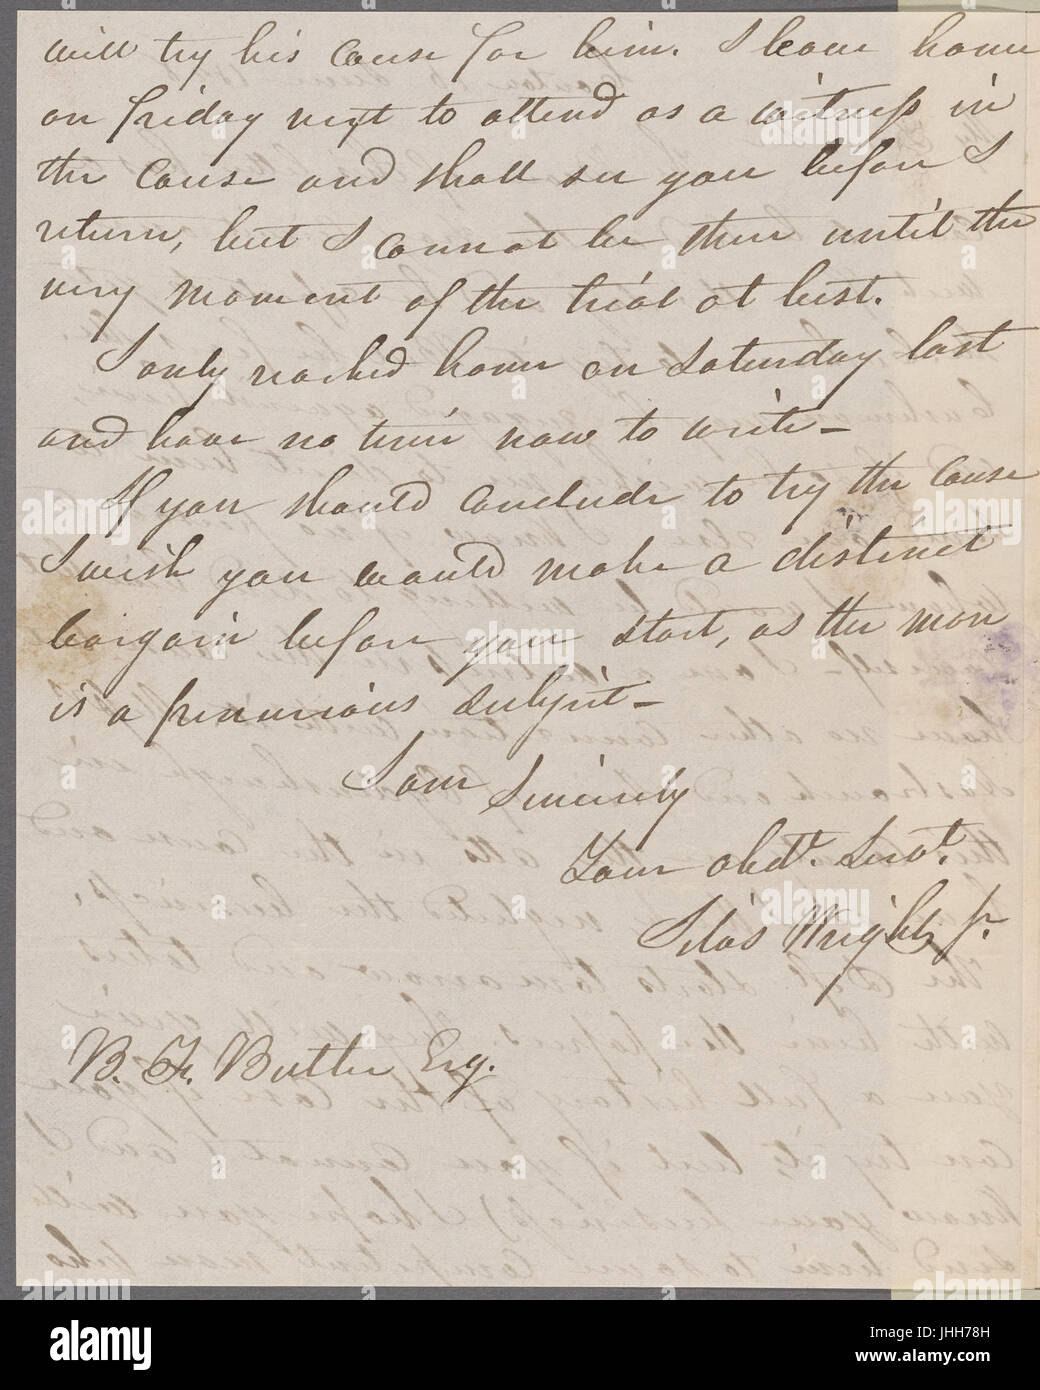 will try his cause for him. I leave home
on friday next to attend as a witness in
the cause and shall see you before I
return, but I cannot be there until the
very moment of the trial at best.
I only reached home on Saturday last
and have no time now to write—
If you should conclude to try the cause
I wish you would make a distinct
bargain before you start, as the man
is a penurious subject—
I am Sincerely
Your obdt. Servt.
Silas Wright Jr.
B. F. Butler Esq.
alamy stock photo
JHH78H
www.alamy.com